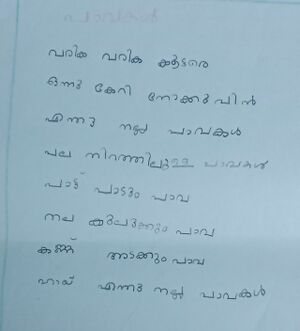 പാവകൾ
വരിക വരിക കൂട്ടരെ
ഒന്നു കേറി നോക്കുപിൻ
എന്തു നല്ല പാവകൾ
പല നിറത്തിലുള്ള പാവകൾ
പാട്ട് പാടും പാവ
തല കുലുക്കും പാവ
കണ്ണ് അടക്കും പാവ
ഹായ് എന്തു നല്ല പാവകൾ